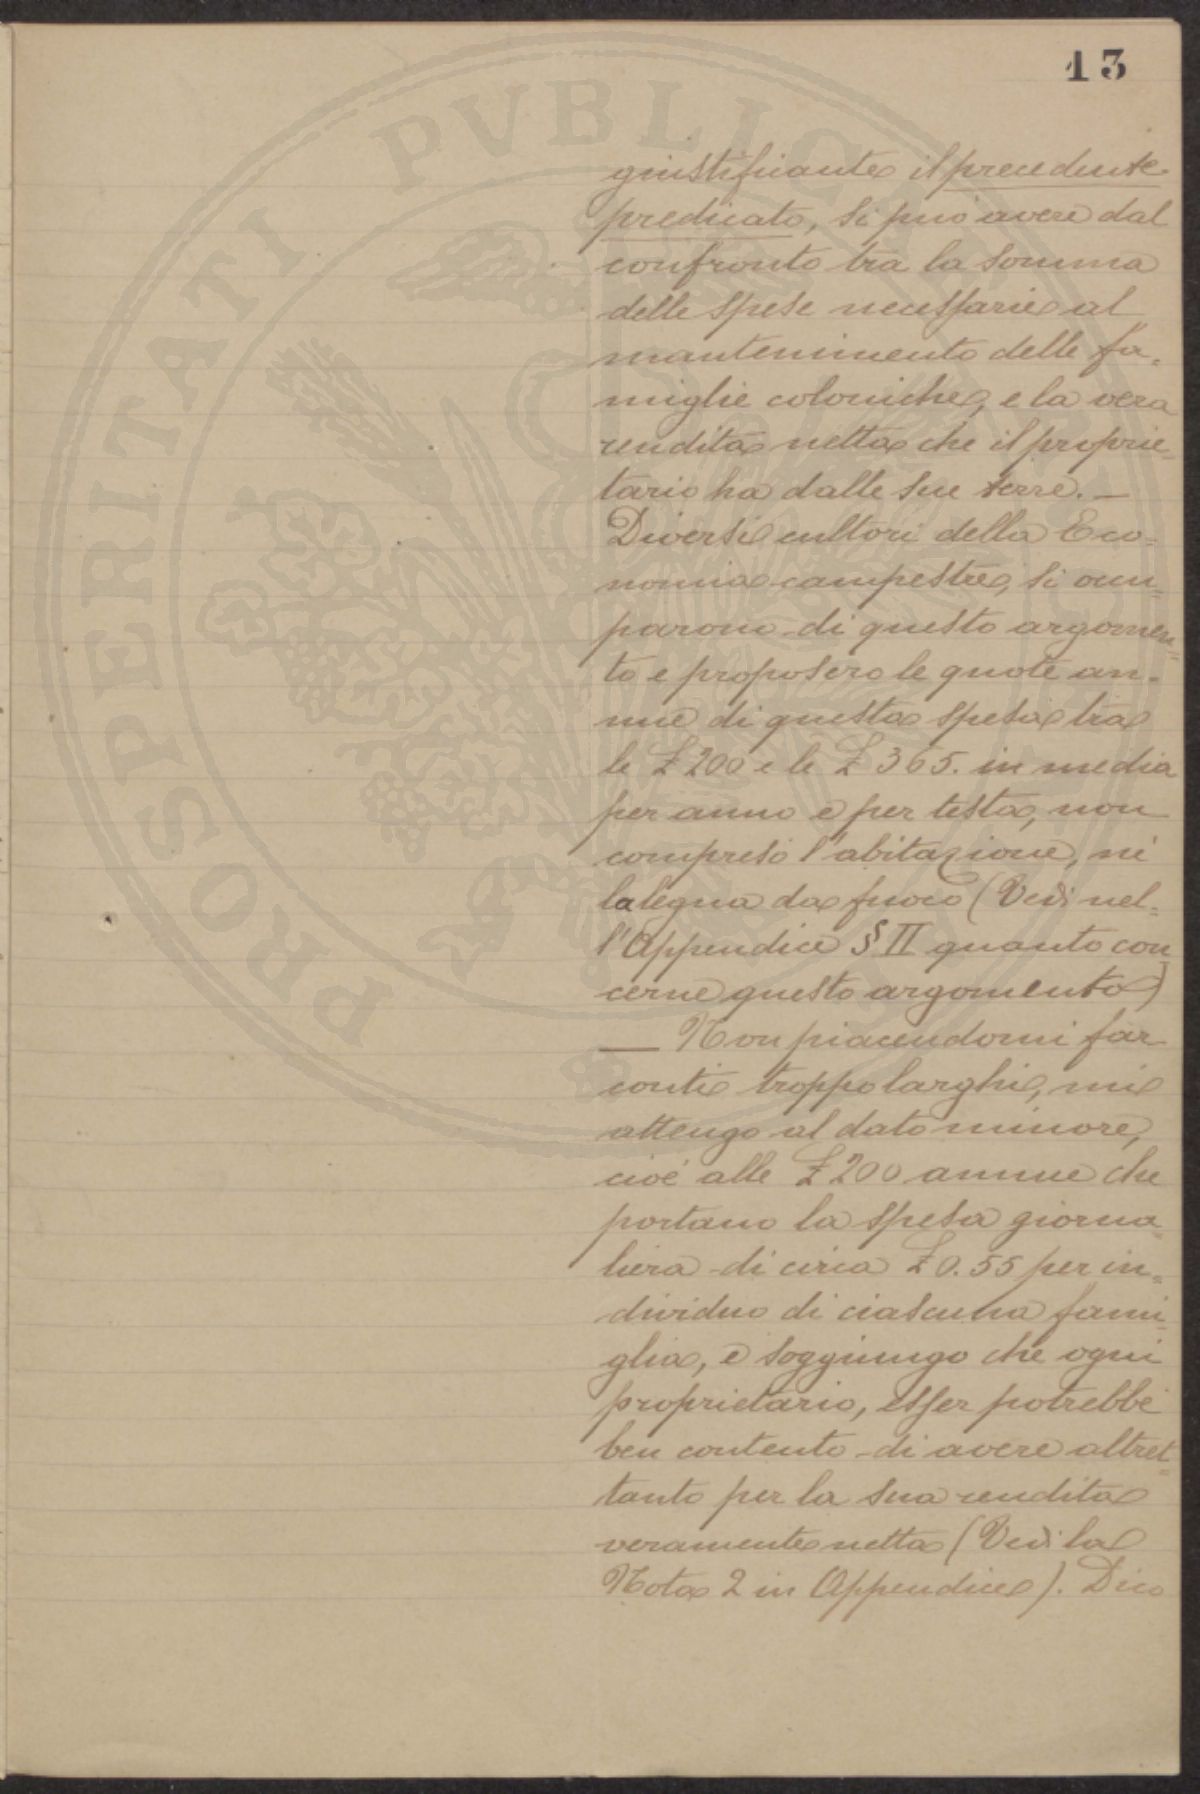 13
giustificante il precedente
predicato, si può avere dal
confronto tra la somma
delle spese necessarie al
mantenimento delle fa-
miglie coloniche, e la vera
rendita netta che il proprie-
tario ha dalle sue terre. —
Diversi cultori della Eco-
nomia campestre, si occu-
parono di questo argomen-
to e proposero le quote an-
nue di questa spesa tra
le £ 200 e le £ 365. in media
per anno e per testa, non
compresó l'abitazione, nè
la legna da fuoco (Vedi nel-
l'Appendice § II quanto con-
cerne questo argomento)
— Non piacendomi far
conti troppo larghi, mi
attengo al dato minore,
cioè alle £ 200 annue che
portano la spesa giorna-
liera di circa £ 0.55 per in-
dividuo di ciascuna fami-
glia, e soggiungo che ogni
proprietario, esser potrebbe
ben contento di avere altret-
tanto per la sua rendita
veramente netta (Vedi la
Nota 2 in Appendice). Dico
PROSPERITATI PVBLICAE